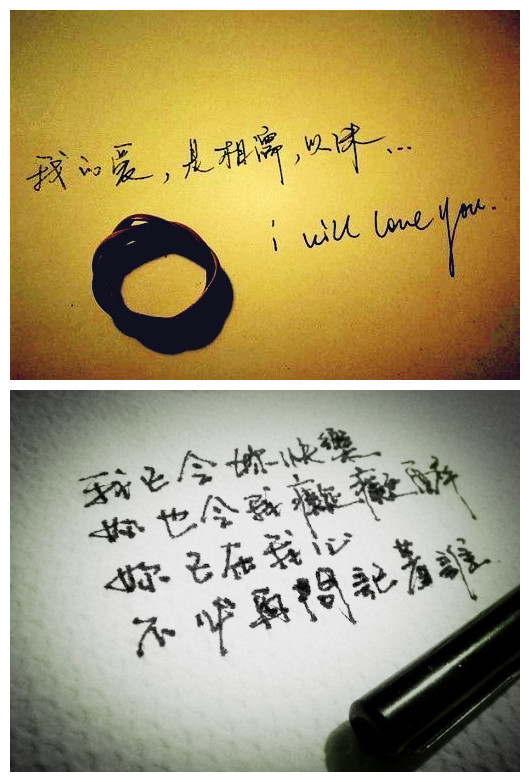 我的爱，是相濡，以沫...
i will love you.
我已令妳快樂
妳也令我癡癡醉
妳已在我心
不必再問記着誰